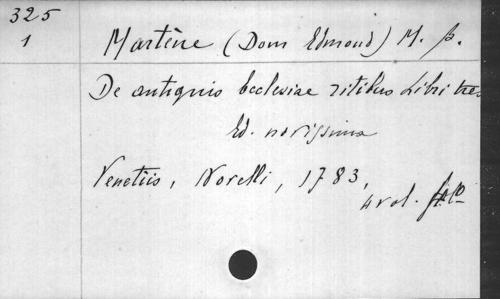 325
1
Martène (Dom Edmond) M. p.
De antiquis Ecclesiae ritibus Libri tres
Ed. novissima
Venetiis, Novelli, 1783,
4 vol. fol°